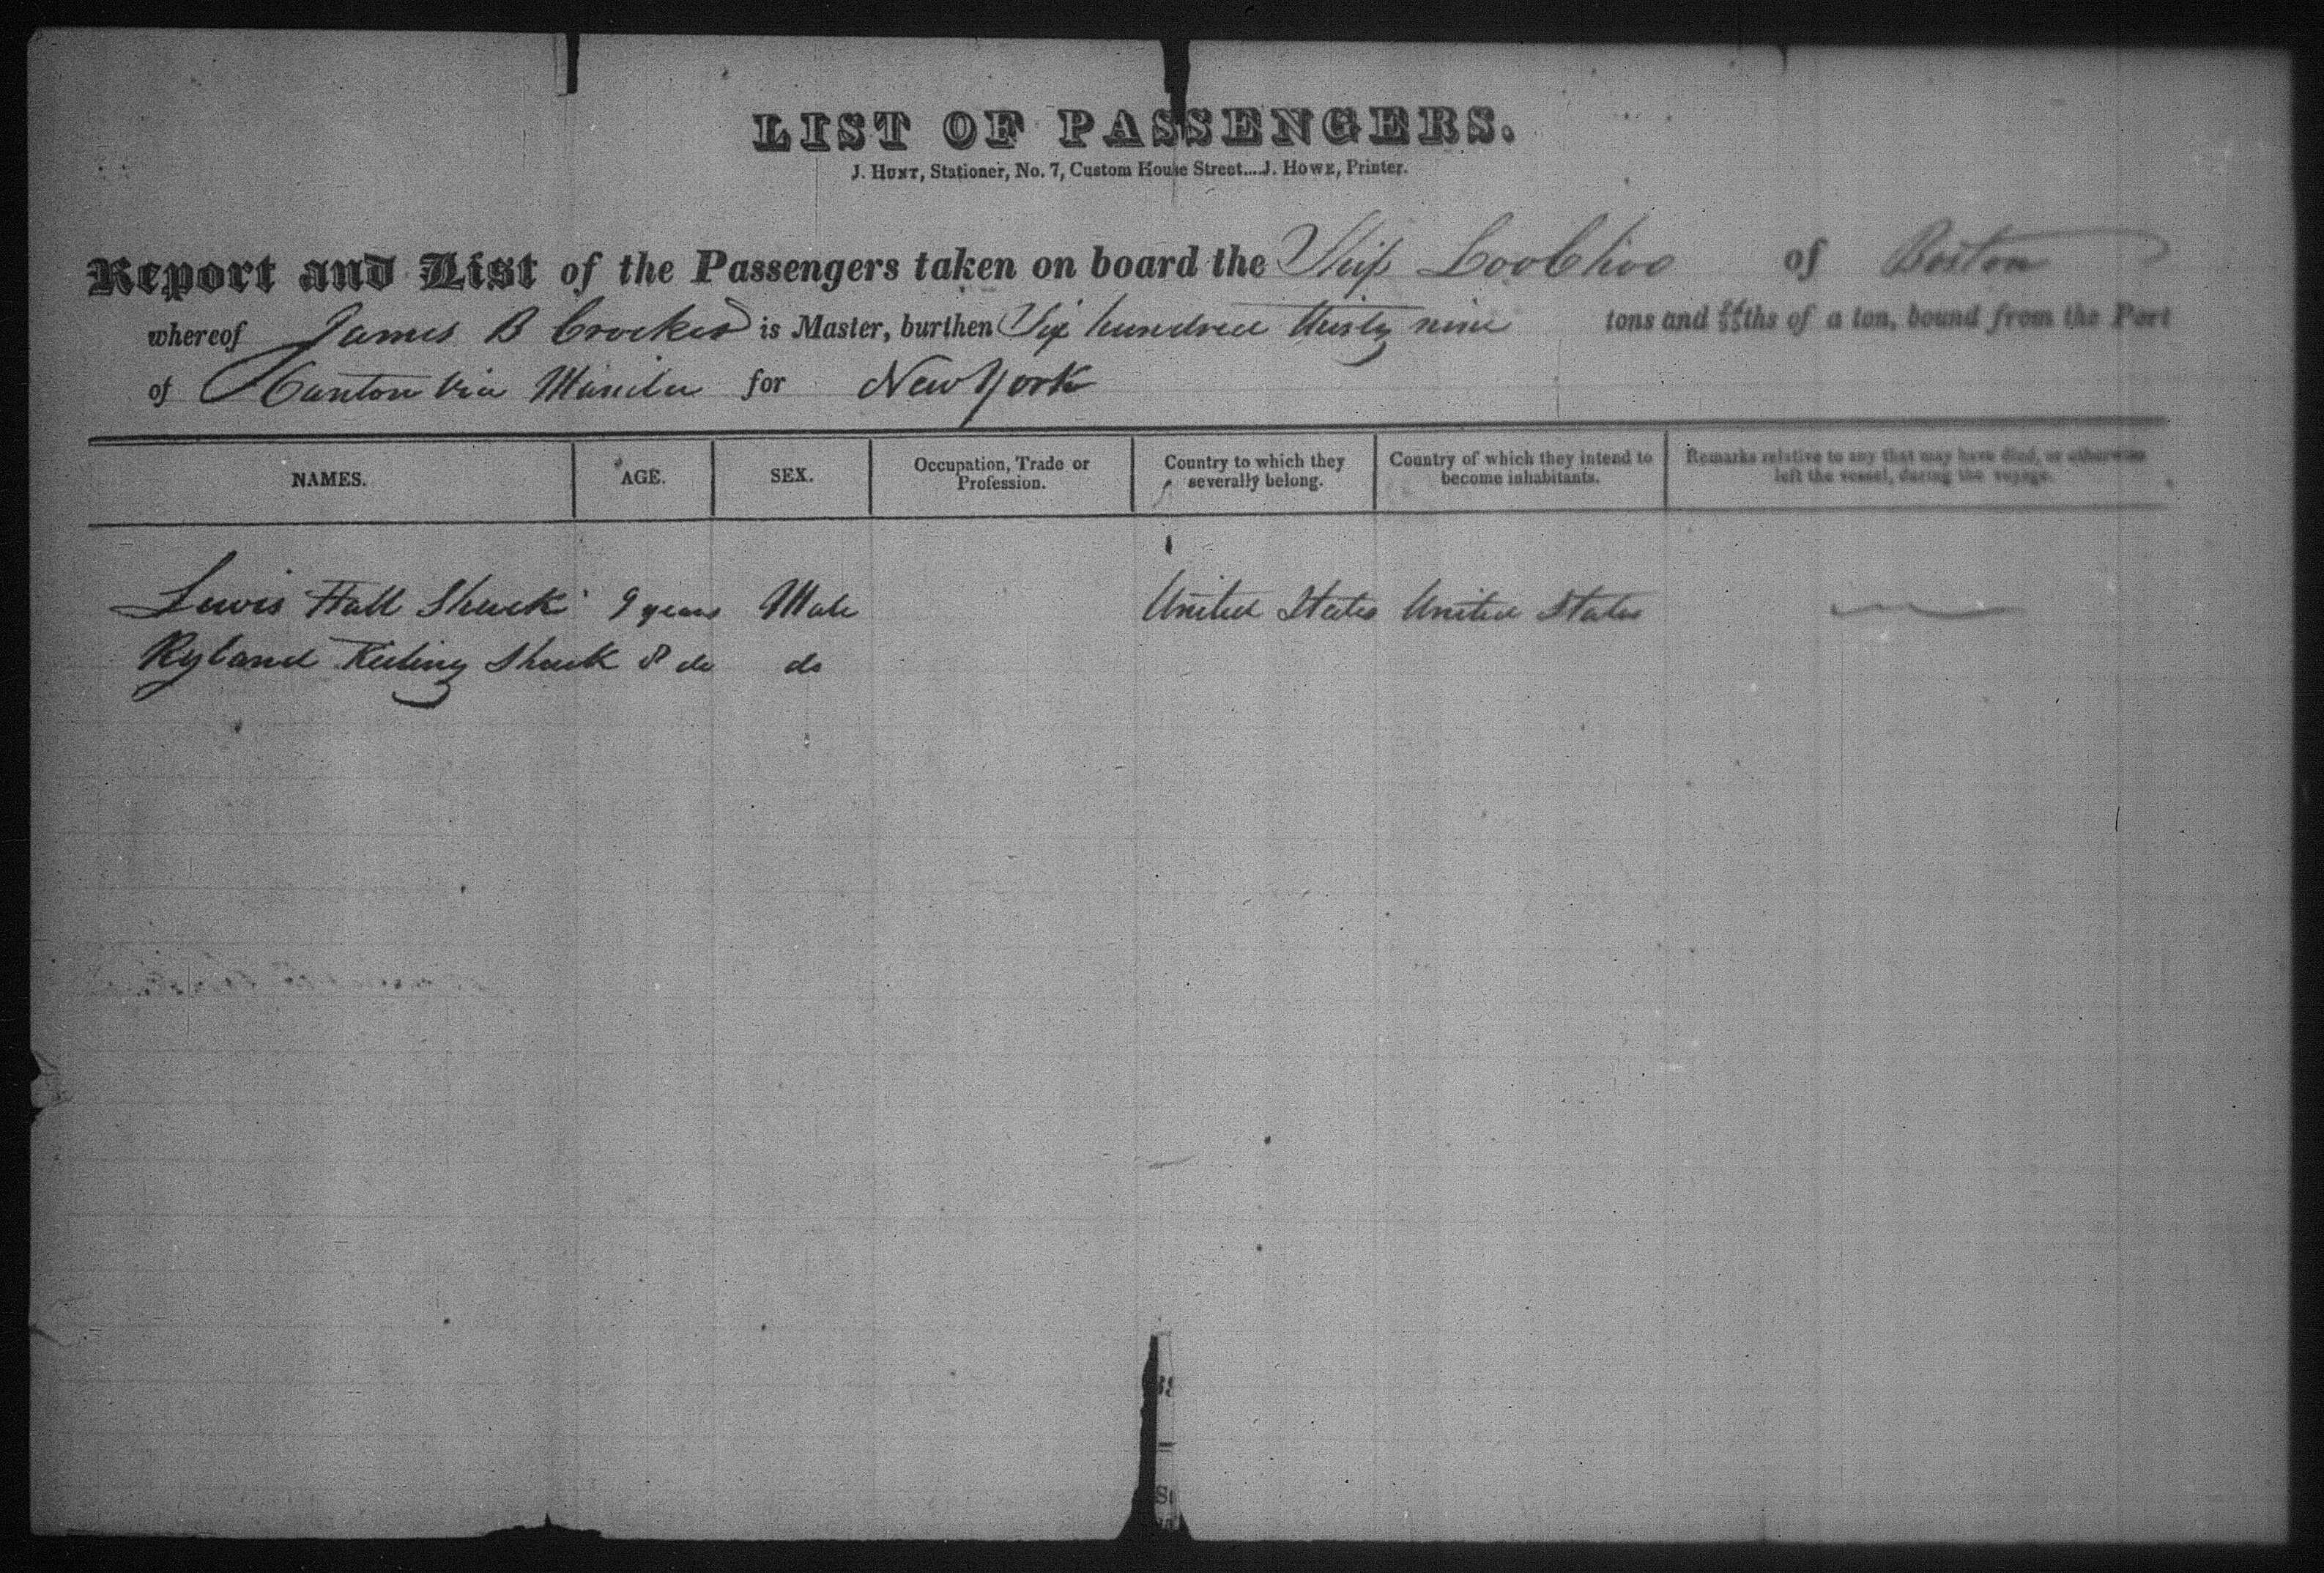 LIST OF PASSENGERS.
J. HUNT, Stationer, No. 7, Custom House Street....J. HOWE, Printer.
Report and List of the Passengers taken on board the Ship LooChoo of Boston
whereof James B Crocker is Master, burthen Six hundred thirty nine tons and ths of a ton, bound from the Port
of Canton via Manila for New York
NAMES. AGE. SEX. Occupation, Trade or Profession. Country to which they severally belong. Country of which they intend to become inhabitants. Remarks relative to any that may have died, or otherwise left the vessel, during the voyage.
Lewis Hall Shuck 9 years Male United States United States
Ryland Keeling Shuck 8 do do